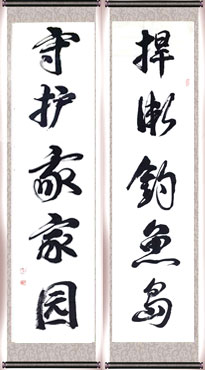 捍衛釣魚島
守护我家园